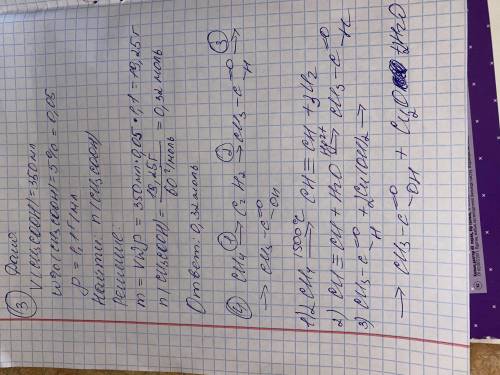 ③ Дано:
V(CH₃COOH)=350 мл
ω%(CH₃COOH)=5%=0,05
ρ=1,1 г/мл
Найти: n(CH₃COOH)
Решение:
m=Vωρ=350 мл·0,05·1,1=19,25 г
n(CH₃COOH)=19,25 г/60 г/моль=0,32 моль
Ответ: 0,32 моль
④ CH₄ →① C₂H₂ →② CH₃-C=O H →③
→ CH₃-C=O OH
1) 2CH₄ 1500°C → CH≡CH+3H₂
2) CH≡CH+H₂O Hg2+ → CH₃-C=O H
3) CH₃-C=O H +2Cu(OH)₂ →
→ CH₃-C=O OH + Cu₂O 2H₂O